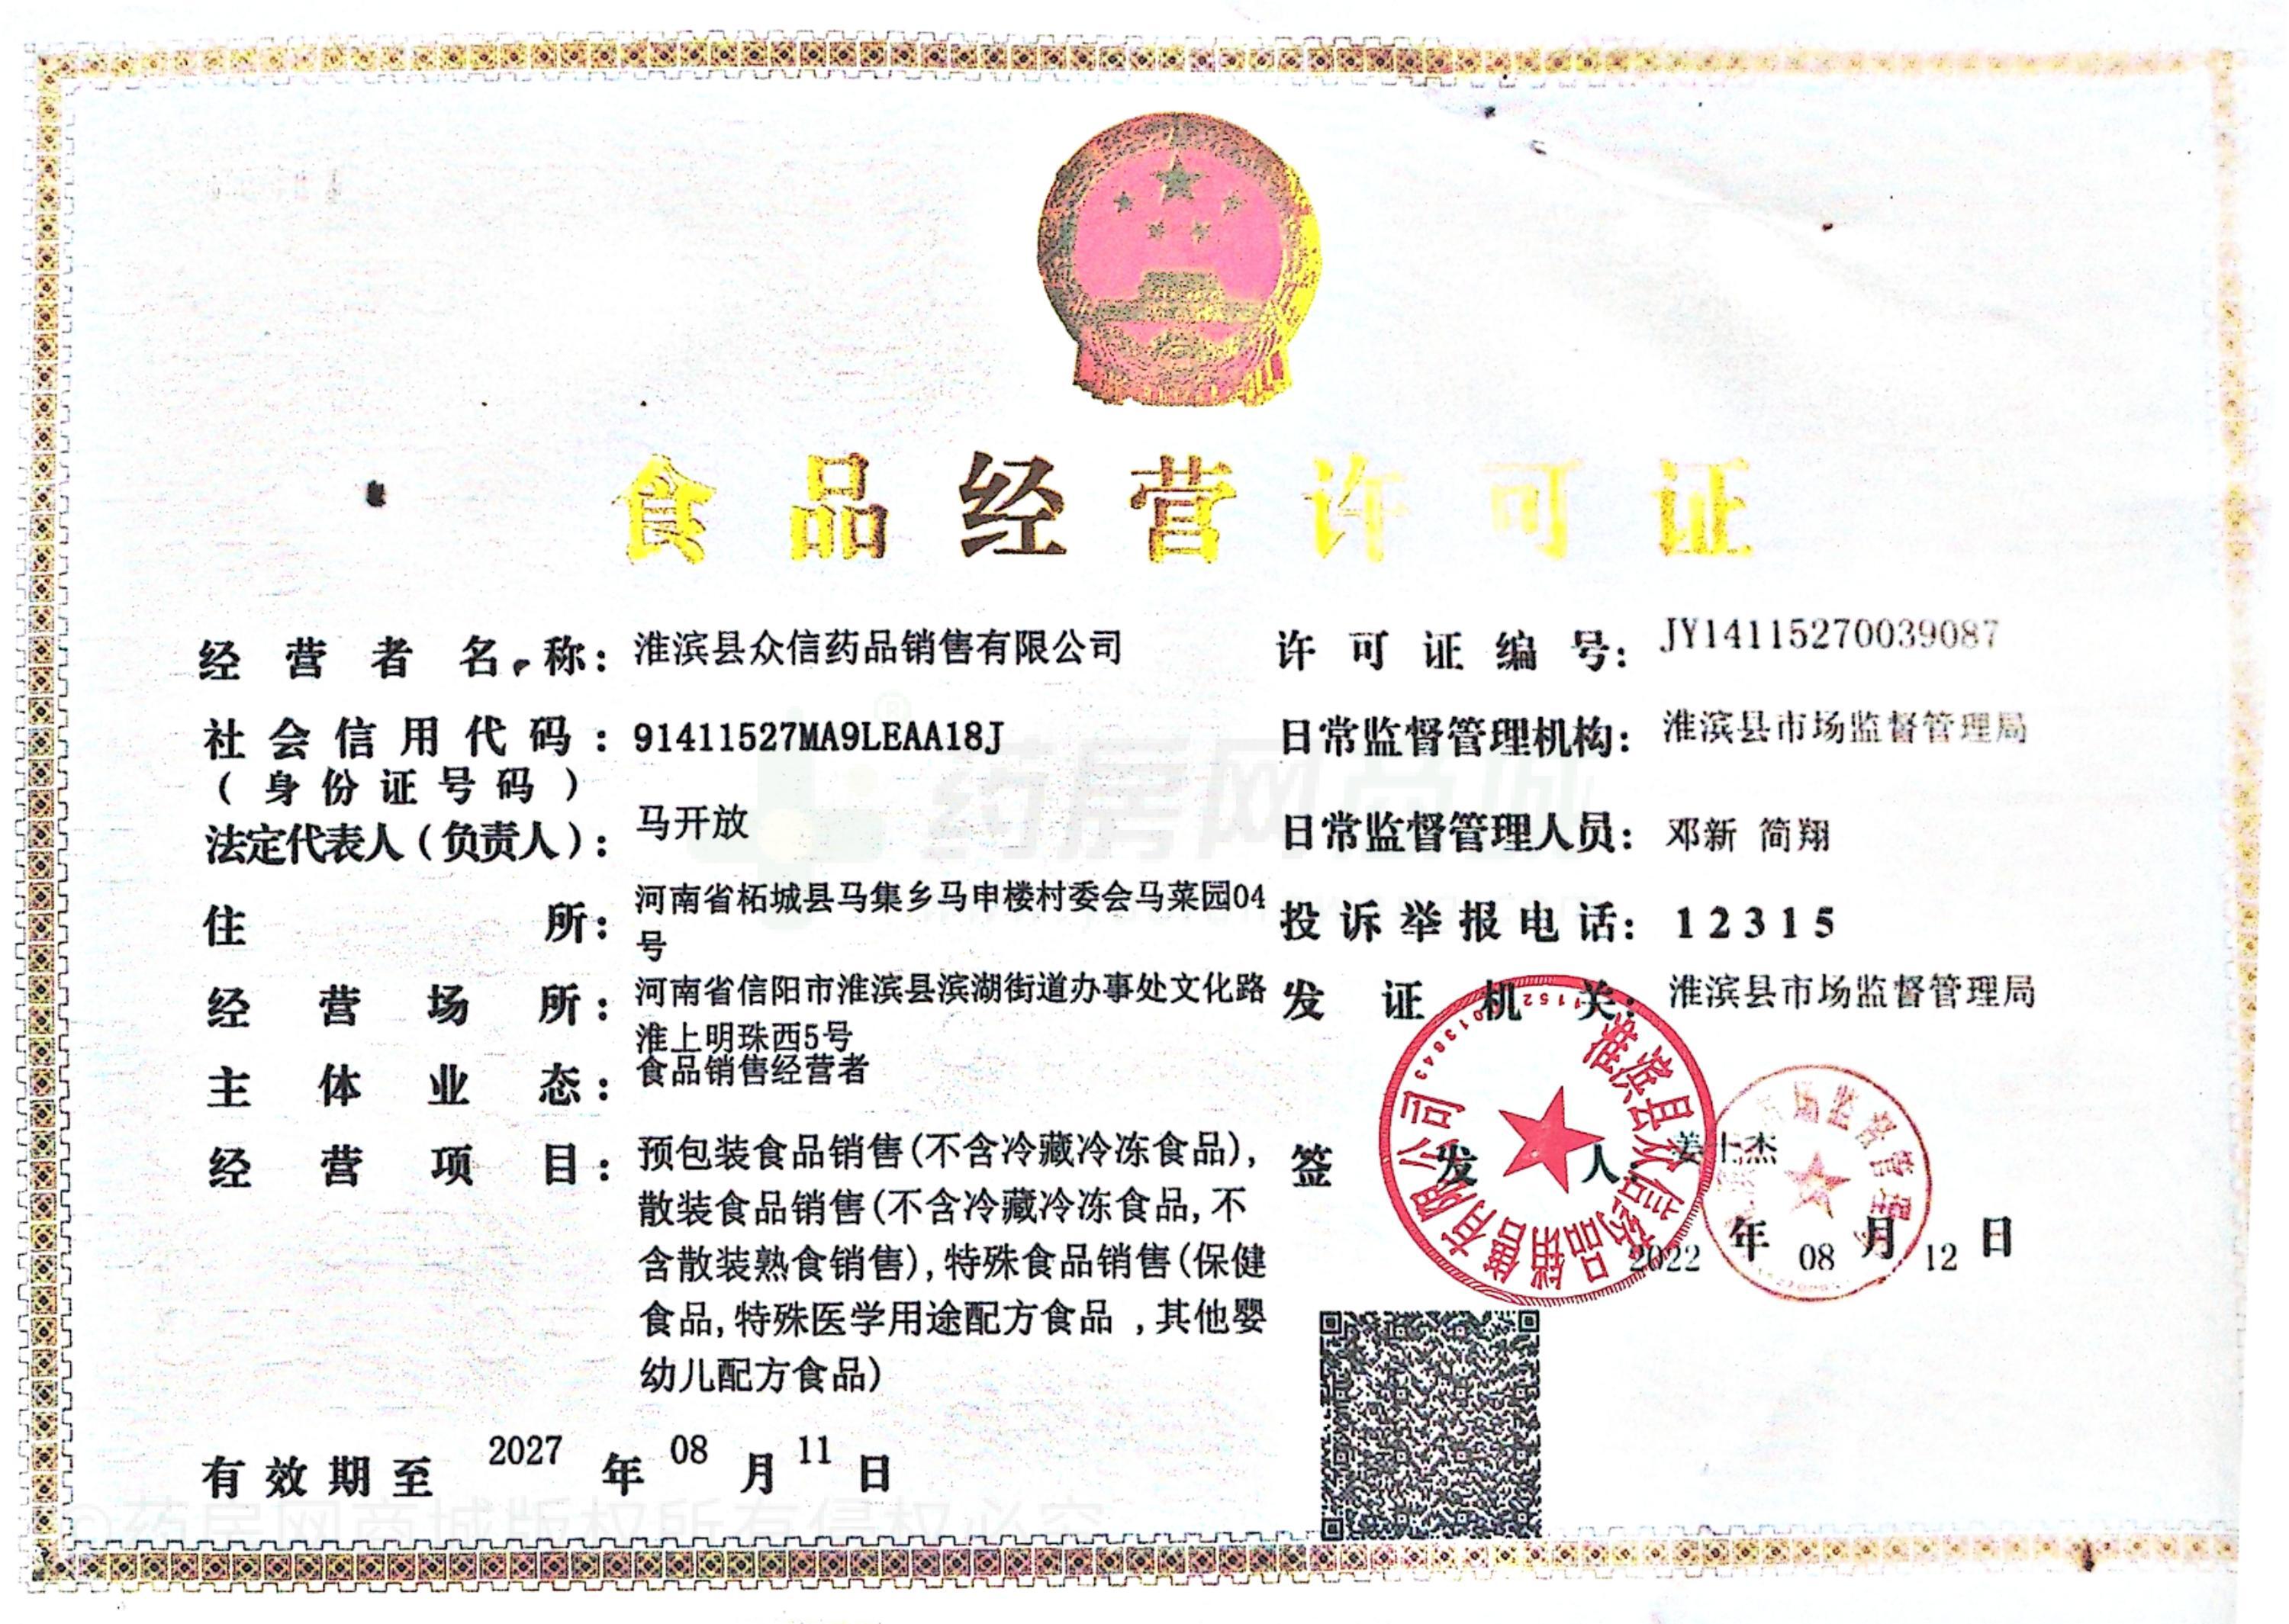 食品经营许可证
经营者名称：淮滨县众信药品销售有限公司
社会信用代码：91411527MA9LEAA18J
（身份证号码）
法定代表人（负责人）：马开放
住所：河南省柘城县马集乡马申楼村委会马菜园04
号
经营场所：河南省信阳市淮滨县滨湖街道办事处文化路
淮上明珠西5号
主体业态：食品销售经营者
经营项目：预包装食品销售(不含冷藏冷冻食品),
散装食品销售(不含冷藏冷冻食品,不
含散装熟食销售),特殊食品销售(保健
食品,特殊医学用途配方食品 ,其他婴
幼儿配方食品)
有效期至 2027 年 08 月 11 日
许可证编号：JY14115270039087
日常监督管理机构：淮滨县市场监督管理局
日常监督管理人员：邓新 简翔
投诉举报电话：12315
发证机关：淮滨县市场监督管理局
签发人：姜士杰
2022 年 08 月 12 日
淮滨县众信药品销售有限公司
场监督管理
药房网商城
©药房网商城版权所有侵权必究